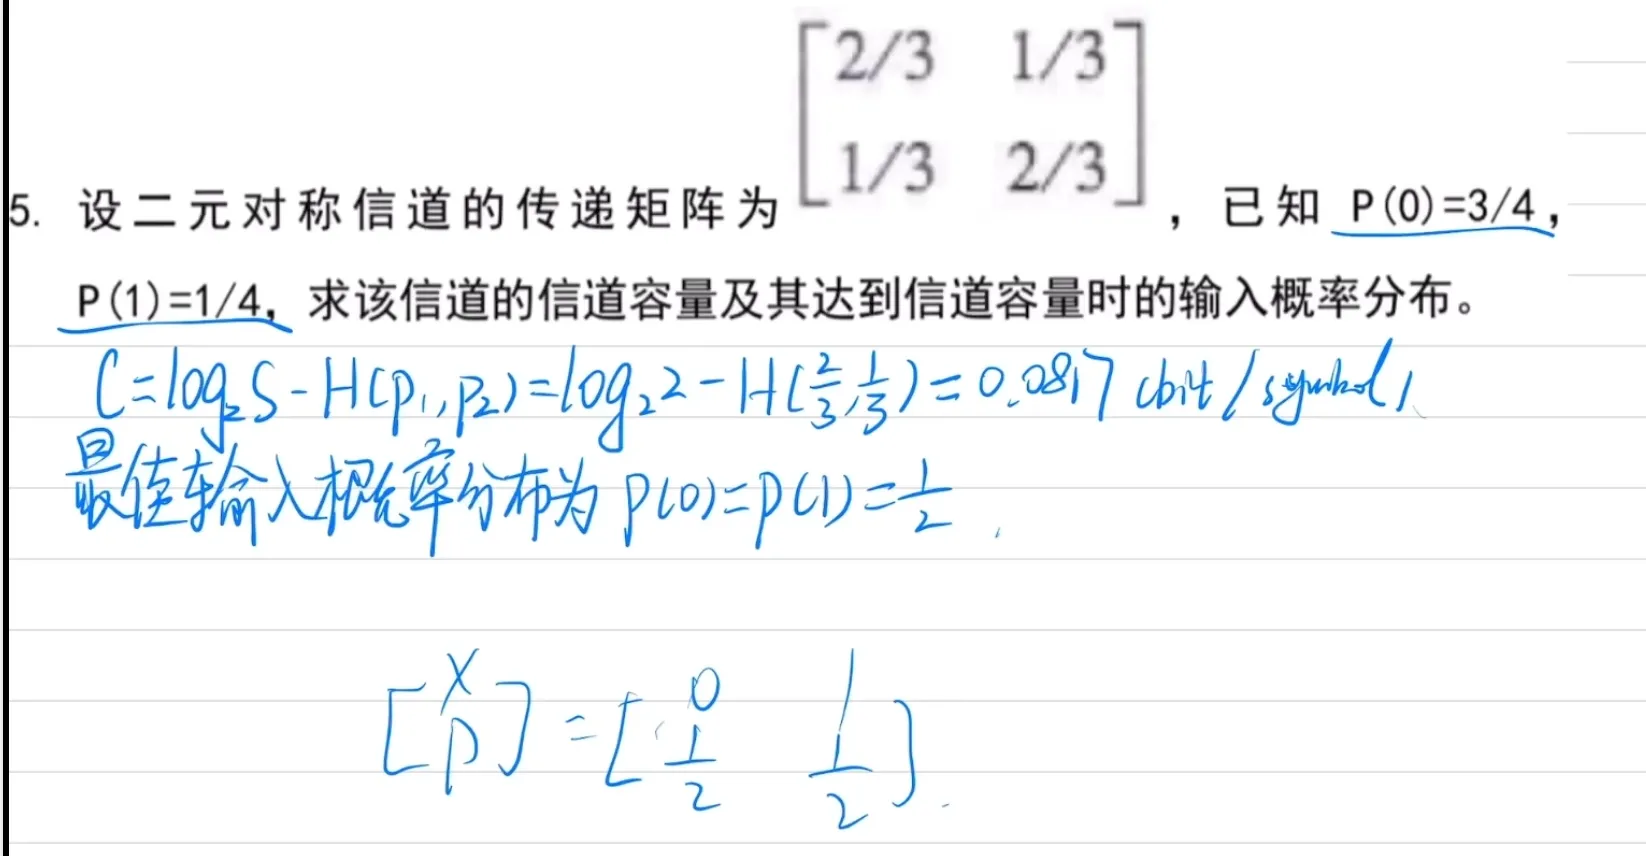 2/3 1/3
1/3 2/3
5. 设二元对称信道的传递矩阵为 , 已知 P(0)=3/4,
P(1)=1/4, 求该信道的信道容量及其达到信道容量时的输入概率分布。
C=log₂S-H(p₁,p₂)=log₂2-H(2/3,1/3)=0.0817 (bit/symbol)
最佳输入概率分布为 p(0)=p(1)=1/2.
[X P]=[0 1
1/2 1/2].